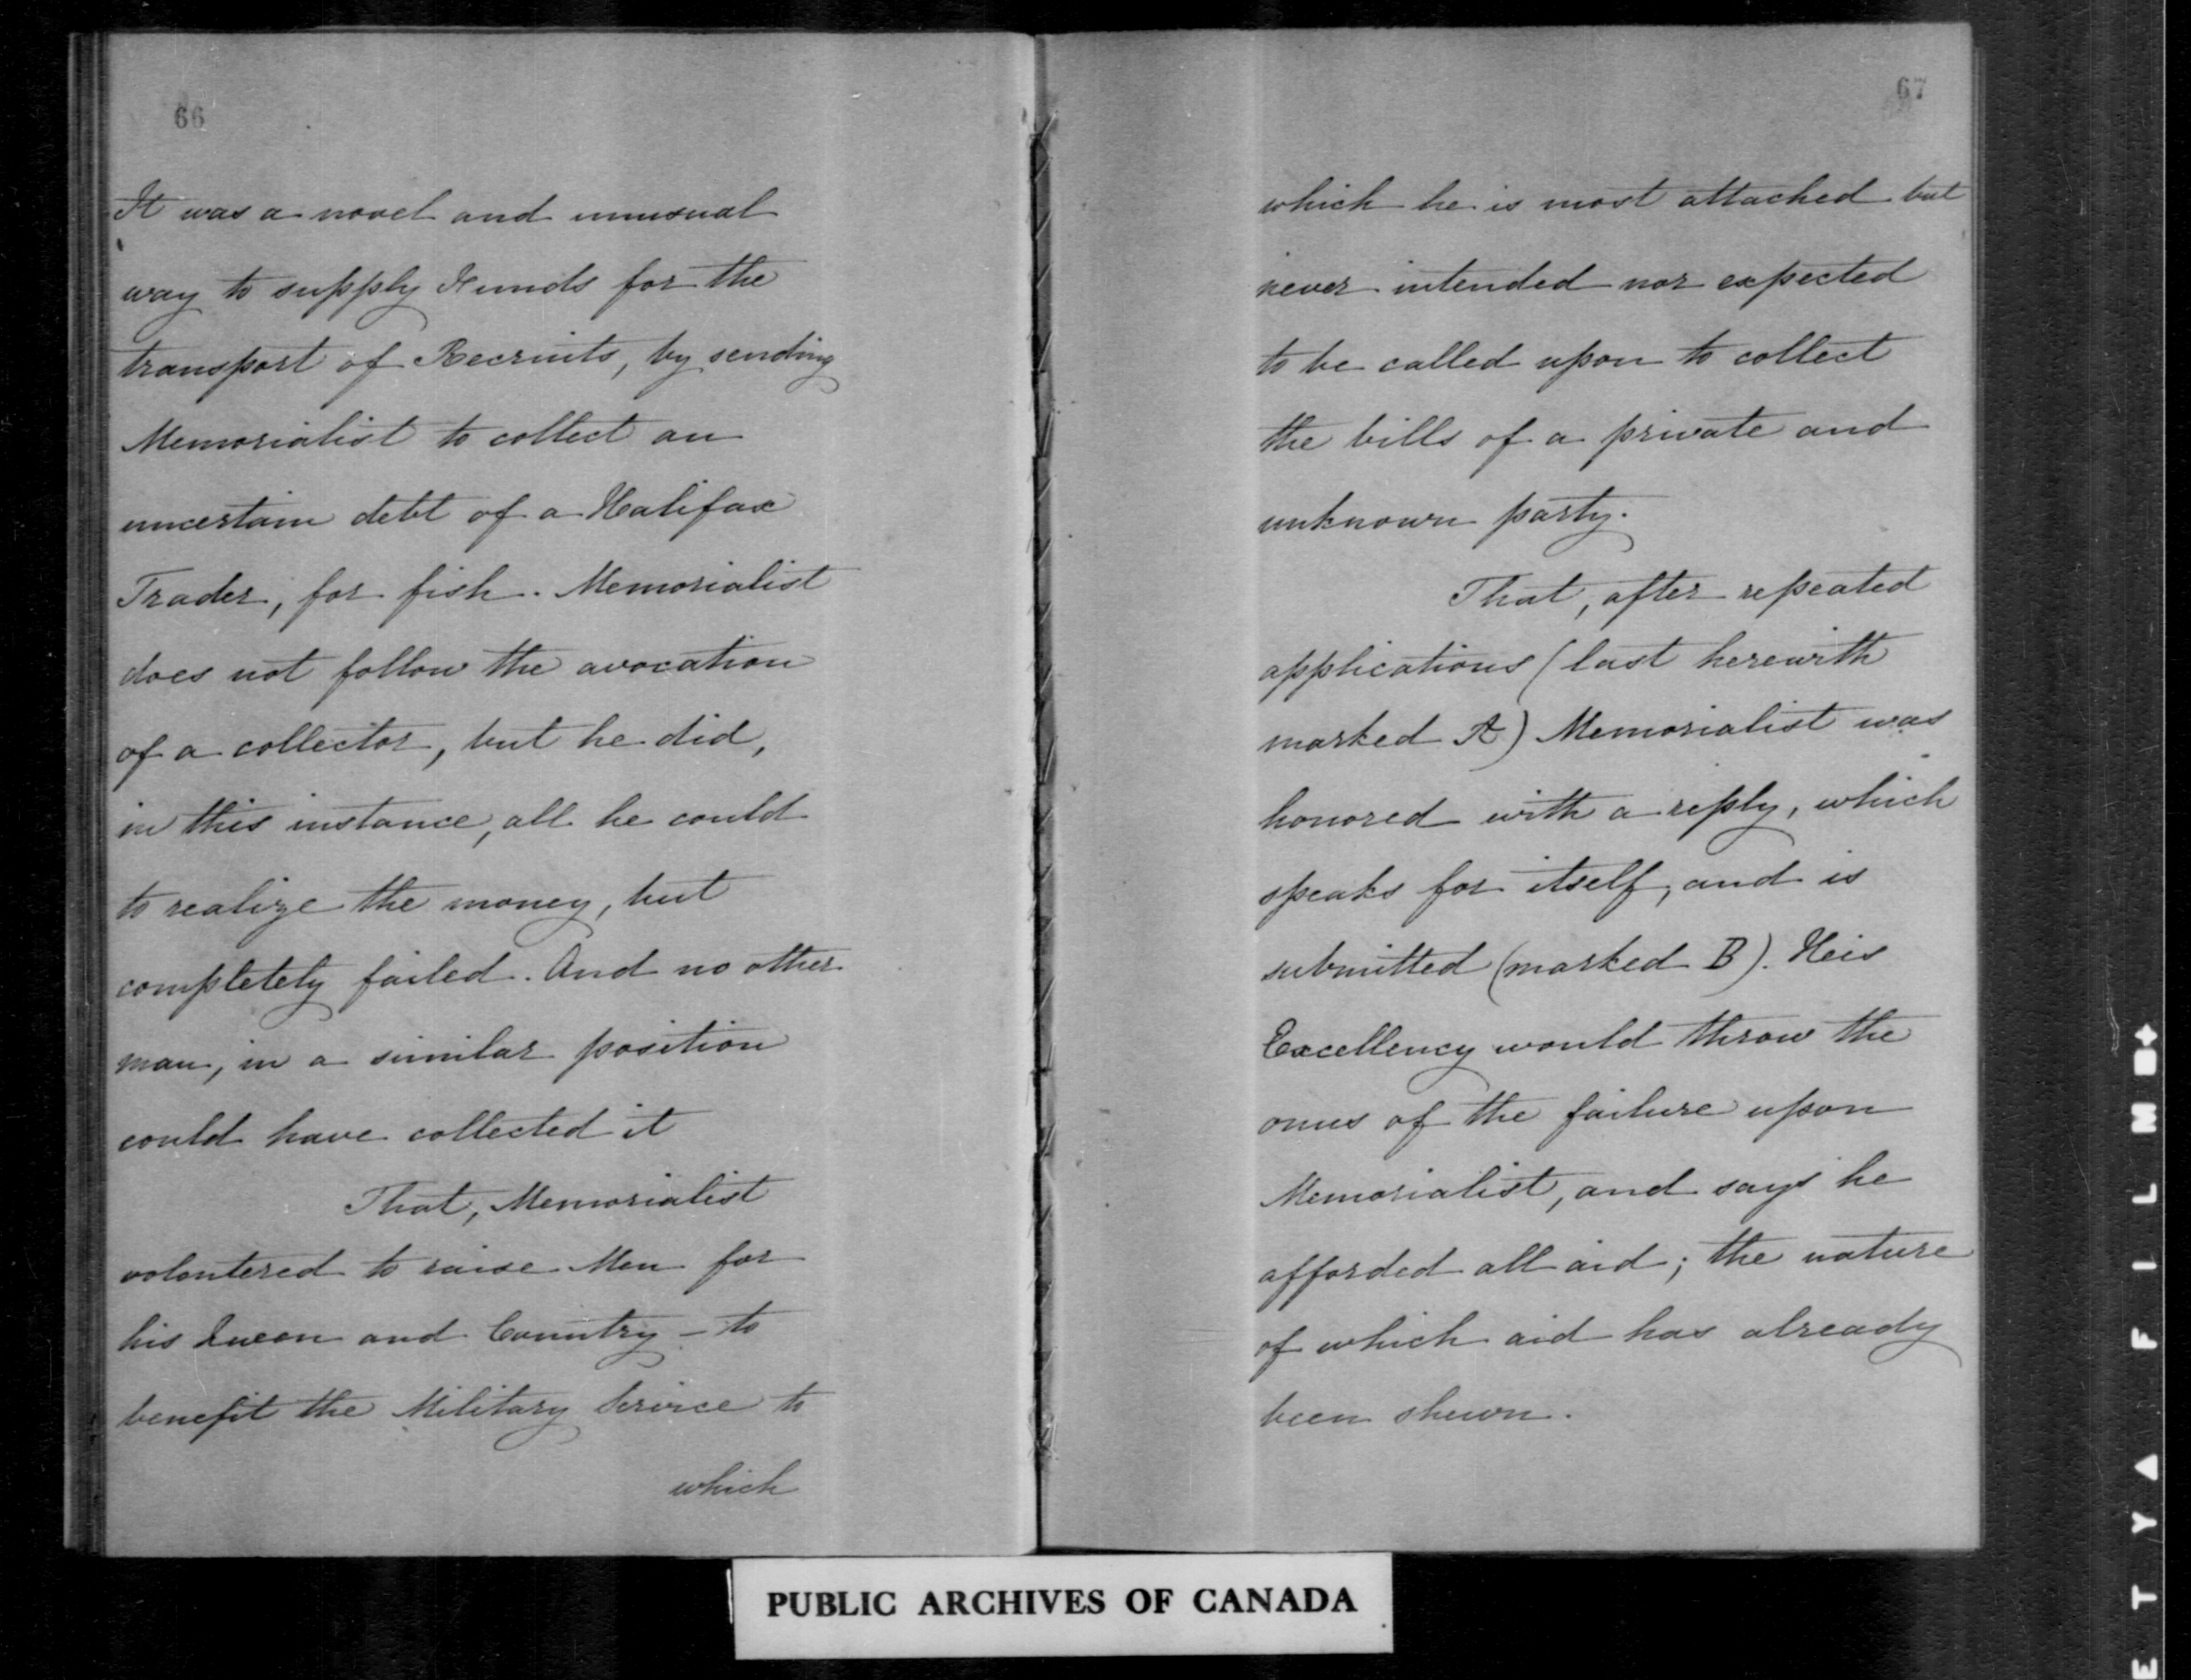 66
It was a novel and unusual
way to supply Funds for the
transport of Recruits, by sending
Memorialist to collect an
uncertain debt of a Halifax
Trader, for fish. Memorialist
does not follow the avocation
of a collector, but he did,
in this instance, all he could
to realize the money, but
completely failed. And no other
man, in a similar position
could have collected it
That, Memorialist
volontered to raise Men for
his Queen and Country - to
benefit the Military Service to
which
67
which he is most attached but
never intended nor expected
to be called upon to collect
the bills of a private and
unknown party.
That, after repeated
applications (last herewith
marked A) Memorialist was
honored with a reply, which
speaks for itself, and is
submitted (marked B). His
Excellency would throw the
onus of the failure upon
Memorialist, and says he
afforded all aid; the nature
of which aid has already
been shewn.
PUBLIC ARCHIVES OF CANADA
E T Y ▲ F I L M